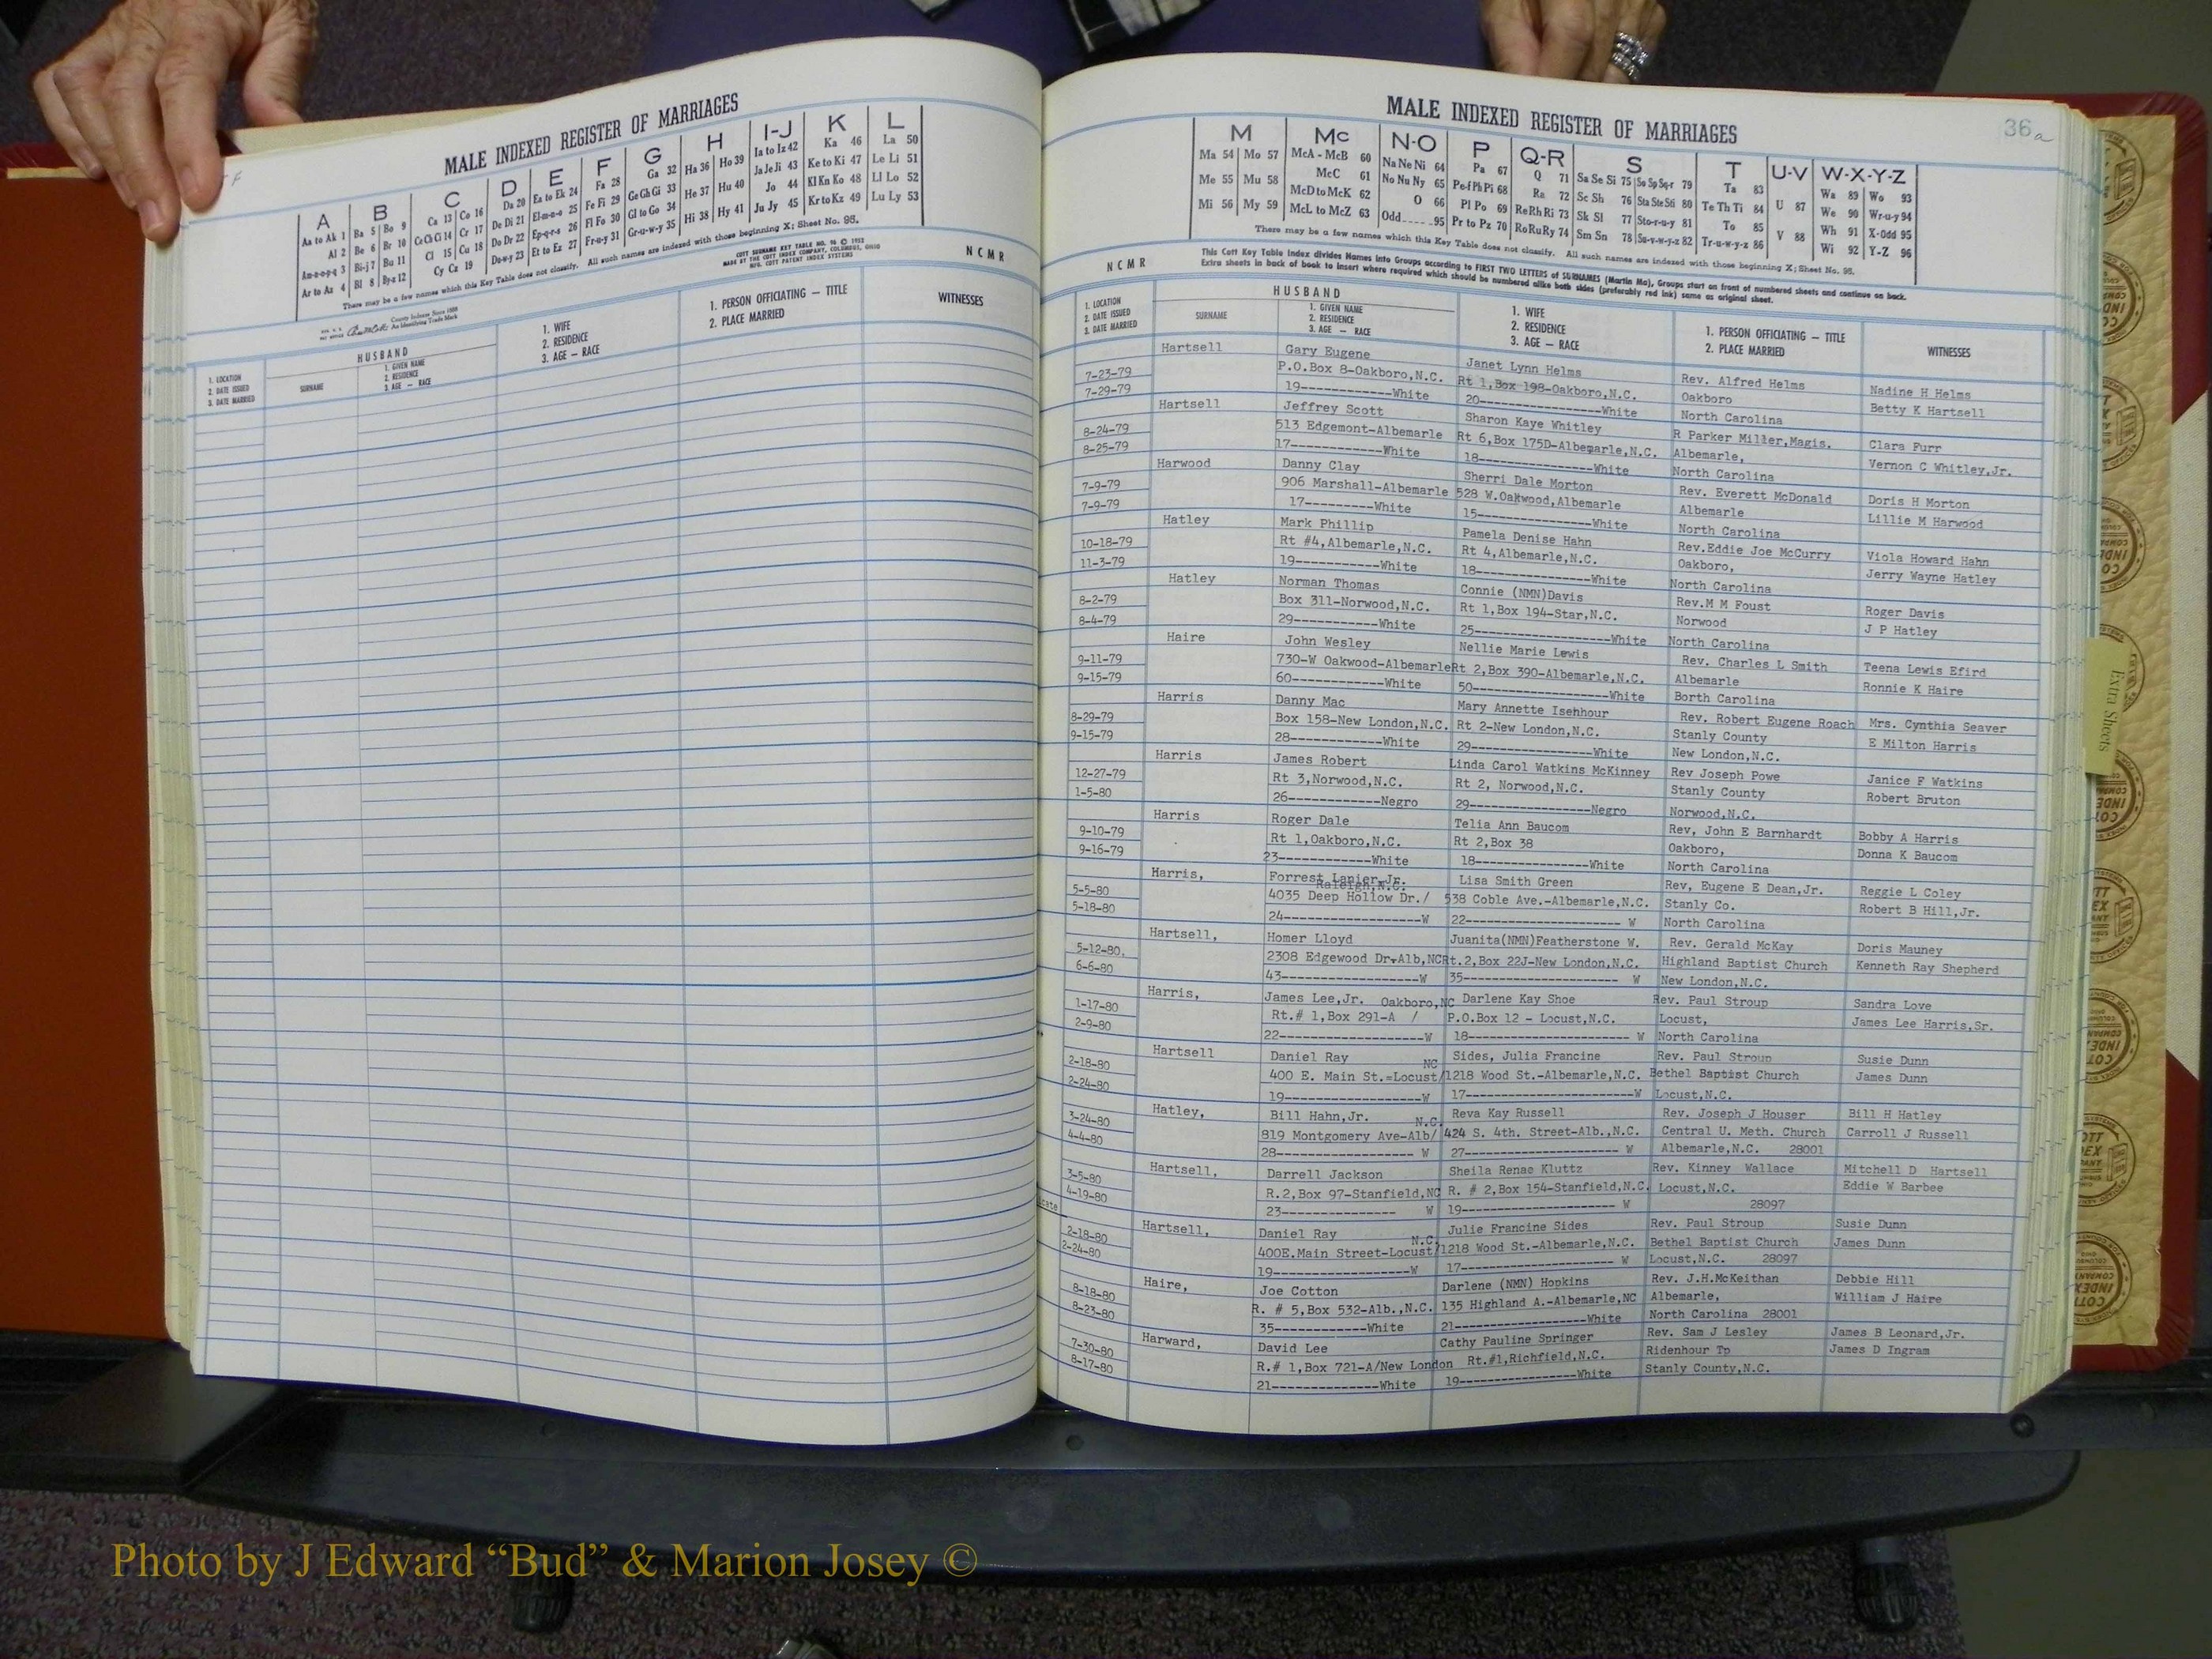 MALE INDEXED REGISTER OF MARRIAGES
A B C D E F G H I-J K L
Aa to Ak 1 Ba 5 Bo 9 Ca 13 Co 16 Da 20 Ea to Ek 24 Fa 28 Ga 32 Ha 36 Ho 39 Ia to Iz 42 Ka 46 La 50
Al 2 Be 6 Br 10 Ce Ch Ci 14 Cr 17 De Di 21 El-m-n-o 25 Fe Fi 29 Ge Gh Gi 33 He 37 Hu 40 Ja Je Ji 43 Ke to Ki 47 Le Li 51
Am-n-o-p-q 3 Bi-j 7 Bu 11 Cl 15 Cu 18 Do Dr 22 Ep-q-r-s 26 Fl Fo 30 Gl to Go 34 Hi 38 Hy 41 Jo 44 Kl Kn Ko 48 Ll Lo 52
Ar to Az 4 Bl 8 By-z 12 Cy Cz 19 Du-w-y 23 Et to Ez 27 Fr-u-y 31 Gr-u-w-y 35 Ju Jy 45 Kr to Kz 49 Lu Ly 53
There may be a few names which this Key Table does not classify. All such names are indexed with those beginning X; Sheet No. 98.
COTT SURNAME KEY TABLE NO. 96 © 1952
MADE BY THE COTT INDEX COMPANY, COLUMBUS, OHIO
MFG. COTT PATENT INDEX SYSTEMS
County Indexes Since 1888
An Identifying Trade Mark
N C M R
1. LOCATION
2. DATE ISSUED
3. DATE MARRIED
HUSBAND
SURNAME
1. GIVEN NAME
2. RESIDENCE
3. AGE — RACE
1. WIFE
2. RESIDENCE
3. AGE — RACE
1. PERSON OFFICIATING — TITLE
2. PLACE MARRIED
WITNESSES
MALE INDEXED REGISTER OF MARRIAGES
36a
M Mc N-O P Q-R S T U-V W-X-Y-Z
Ma 54 Mo 57 McA - McB 60 Na Ne Ni 64 Pa 67 Q 71 Sa Se Si 75 So Sp Sq-r 79 Ta 83 U 87 Wa 89 Wo 93
Me 55 Mu 58 McC 61 No Nu Ny 65 Pe-f Ph Pi 68 Ra 72 Sc Sh 76 Sta Ste Sti 80 Te Th Ti 84 V 88 We 90 Wr-u-y 94
Mi 56 My 59 McD to McK 62 O 66 Pl Po 69 Re Rh Ri 73 Sk Sl 77 Sto-r-u-y 81 To 85 Wh 91 X-Odd 95
McL to McZ 63 Odd 95 Pr to Pz 70 Ro Ru Ry 74 Sm Sn 78 Su-v-w-y-z 82 Tr-u-w-y-z 86 Wi 92 Y-Z 96
There may be a few names which this Key Table does not classify. All such names are indexed with those beginning X; Sheet No. 98.
This Cott Key Table Index divides Names into Groups according to FIRST TWO LETTERS of SURNAMES (Martin Ma), Groups start on front of numbered sheets and continue on back.
Extra sheets in back of book to insert where required which should be numbered alike both sides (preferably red ink) same as original sheet.
N C M R
1. LOCATION
2. DATE ISSUED
3. DATE MARRIED
HUSBAND
SURNAME
1. GIVEN NAME
2. RESIDENCE
3. AGE — RACE
1. WIFE
2. RESIDENCE
3. AGE — RACE
1. PERSON OFFICIATING — TITLE
2. PLACE MARRIED
WITNESSES
Hartsell Gary Eugene Janet Lynn Helms Rev. Alfred Helms Nadine H Helms
7-23-79 P.O.Box 8-Oakboro,N.C. Rt 1,Box 198-Oakboro,N.C. Oakboro Betty K Hartsell
7-29-79 19------------White 20----------------White North Carolina
Hartsell Jeffrey Scott Sharon Kaye Whitley R Parker Miller,Magis. Clara Furr
8-24-79 513 Edgemont-Albemarle Rt 6,Box 175D-Albemarle,N.C. Albemarle, Vernon C Whitley,Jr.
8-25-79 17------------White 18---------------White North Carolina
Harwood Danny Clay Sherri Dale Morton Rev. Everett McDonald Doris H Morton
7-9-79 906 Marshall-Albemarle 528 W.Oakwood,Albemarle Albemarle Lillie M Harwood
7-9-79 17---------White 15---------------White North Carolina
Hatley Mark Phillip Pamela Denise Hahn Rev.Eddie Joe McCurry Viola Howard Hahn
10-18-79 Rt #4,Albemarle,N.C. Rt 4,Albemarle,N.C. Oakboro, Jerry Wayne Hatley
11-3-79 19-----------White 18---------------White North Carolina
Hatley Norman Thomas Connie (NMN)Davis Rev.M M Foust Roger Davis
8-2-79 Box 311-Norwood,N.C. Rt 1,Box 194-Star,N.C. Norwood J P Hatley
8-4-79 29-----------White 25------------------White North Carolina
Haire John Wesley Nellie Marie Lewis Rev. Charles L Smith Teena Lewis Efird
9-11-79 730-W Oakwood-Albemarle Rt 2,Box 390-Albemarle,N.C. Albemarle Ronnie K Haire
9-15-79 60------------White 50------------------White Borth Carolina
Harris Danny Mac Mary Annette Isehhour Rev. Robert Eugene Roach Mrs. Cynthia Seaver
8-29-79 Box 158-New London,N.C. Rt 2-New London,N.C. Stanly County E Milton Harris
9-15-79 28------------White 29----------------White New London,N.C.
Harris James Robert Linda Carol Watkins McKinney Rev Joseph Powe Janice F Watkins
12-27-79 Rt 3,Norwood,N.C. Rt 2, Norwood,N.C. Stanly County Robert Bruton
1-5-80 26------------Negro 29----------------Negro Norwood,N.C.
Harris Roger Dale Telia Ann Baucom Rev, John E Barnhardt Bobby A Harris
9-10-79 Rt 1,Oakboro,N.C. Rt 2,Box 38 Oakboro, Donna K Baucom
9-16-79 23------------White 18---------------White North Carolina
Harris, Forrest Lanier Jr. Lisa Smith Green Rev, Eugene E Dean,Jr. Reggie L Coley
Raleigh,N.C.
5-5-80 4035 Deep Hollow Dr./ 538 Coble Ave.-Albemarle,N.C. Stanly Co. Robert B Hill,Jr.
5-18-80 24-----------------W 22------------------- W North Carolina
Hartsell, Homer Lloyd Juanita(NMN)Featherstone W. Rev. Gerald McKay Doris Mauney
5-12-80. 2308 Edgewood Dr-Alb,NC Rt.2,Box 22J-New London,N.C. Highland Baptist Church Kenneth Ray Shepherd
6-6-80 43-----------------W 35------------------- W New London,N.C.
Harris, James Lee,Jr. Oakboro,NC Darlene Kay Shoe Rev. Paul Stroup Sandra Love
1-17-80 Rt.# 1,Box 291-A / P.O.Box 12 - Locust,N.C. Locust, James Lee Harris,Sr.
2-9-80 22------------------W 18-------------------- W North Carolina
Hartsell Daniel Ray NC Sides, Julia Francine Rev. Paul Stroup Susie Dunn
2-18-80 400 E. Main St.=Locust/ 1218 Wood St.-Albemarle,N.C. Bethel Baptist Church James Dunn
2-24-80 19-----------------W 17--------------------W Locust,N.C.
Hatley, Bill Hahn,Jr. N.C. Reva Kay Russell Rev. Joseph J Houser Bill H Hatley
3-24-80 819 Montgomery Ave-Alb/ 424 S. 4th. Street-Alb.,N.C. Central U. Meth. Church Carroll J Russell
4-4-80 28----------------- W 27------------------- W Albemarle,N.C. 28001
Hartsell, Darrell Jackson Sheila Renae Kluttz Rev. Kinney Wallace Mitchell D Hartsell
3-5-80 R.2,Box 97-Stanfield,NC R. # 2,Box 154-Stanfield,N.C. Locust,N.C. Eddie W Barbee
4-19-80 23--------------- W 19------------------- W 28097
Hartsell, Daniel Ray N.C. Julie Francine Sides Rev. Paul Stroup Susie Dunn
2-18-80 400E.Main Street-Locust/ 1218 Wood St.-Albemarle,N.C. Bethel Baptist Church James Dunn
2-24-80 19-----------------W 17------------------- W Locust,N.C. 28097
Haire, Joe Cotton Darlene (NMN) Hopkins Rev. J.H.McKeithan Debbie Hill
8-18-80 R. # 5,Box 532-Alb.,N.C. 135 Highland A.-Albemarle,NC Albemarle, William J Haire
8-23-80 35-------------White 21----------------White North Carolina 28001
Harward, David Lee Cathy Pauline Springer Rev. Sam J Lesley James B Leonard,Jr.
7-30-80 R.# 1,Box 721-A/New London Rt.#1,Richfield,N.C. Ridenhour Tp James D Ingram
8-17-80 21--------------White 19---------------White Stanly County,N.C.
Extra Sheets
Photo by J Edward “Bud” & Marion Josey ©